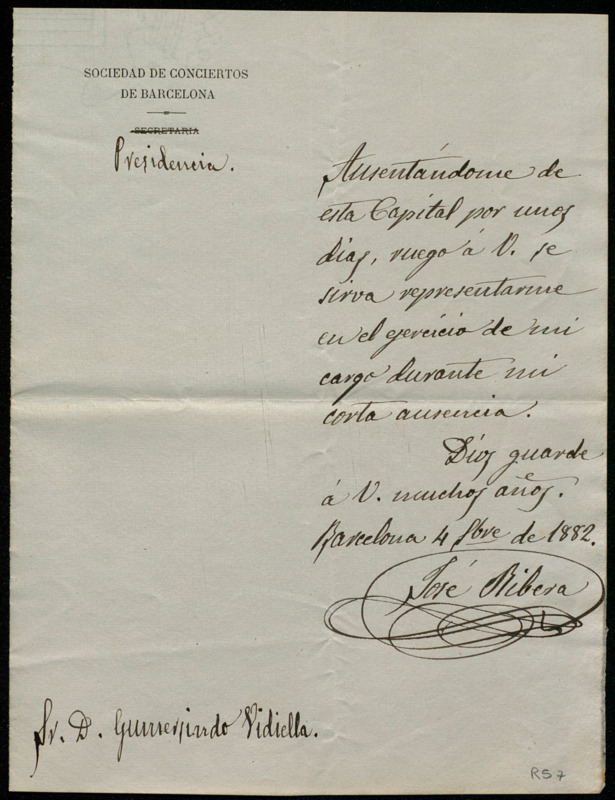 SOCIEDAD DE CONCIERTOS
DE BARCELONA
SECRETARIA
Presidencia.
Ausentándome de
esta Capital por unos
dias, ruego á V. se
sirva representarme
en el ejercicio de mi
cargo durante mi
corta ausencia.
Dios guarde
á V. muchos años.
Barcelona 4 de 1882.
José Ribera
Sr. D. Gumersindo Vidiella.
RS 7